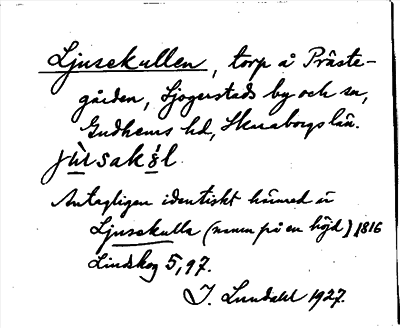 Ljusekullen, torp å Präste-
gården, Sjogerstads by och sn,
Gudhems hd, Skaraborgs län.
jùsakól
Antagligen identiskt härmed är
Ljusekulla (namn på en höjd) 1816
Lindskog 5,97.
J. Lundahl 1927.